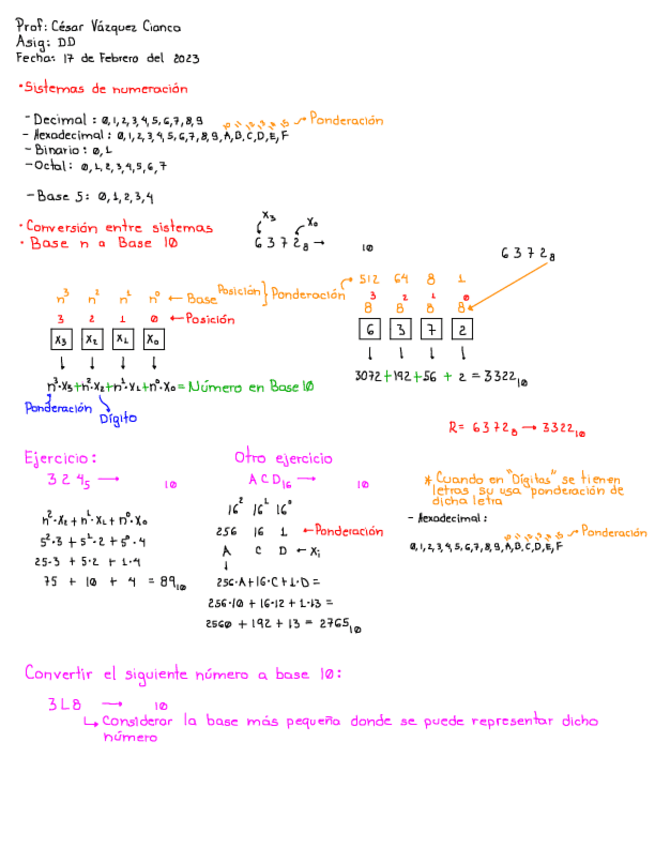 Prof: César Vázquez Cianca
Asig: DD
Fecha: 17 de Febrero del 2023
• Sistemas de numeración
- Decimal : 0,1,2,3,4,5,6,7,8,9
10 11 12 13 14 15 → Ponderación
- Hexadecimal : 0,1,2,3,4,5,6,7,8,9,A,B,C,D,E,F
- Binario : 0,1
- Octal : 0,1,2,3,4,5,6,7
- Base 5: 0,1,2,3,4
• Conversión entre sistemas
• Base n a Base 10
X₃ X₀
6 3 7 2₈ → 10
6 3 7 2₈
n³ n² n¹ n⁰ ← Base
Posición } Ponderación
3 2 1 0 ← Posición
X₃ X₂ X₁ X₀
↓ ↓ ↓ ↓
n³·X₃+n²·X₂+n¹·X₁+n⁰·X₀ = Número en Base 10
Ponderación
Dígito
512 64 8 1
3 2 1 0
8 8 8 8
6 3 7 2
↓ ↓ ↓ ↓
3072 + 192 + 56 + 2 = 3322₁₀
R= 6372₈ → 3322₁₀
Ejercicio :
3 2 4₅ → 10
n²·X₂ + n¹·X₁ + n⁰·X₀
5²·3 + 5¹·2 + 5⁰·4
25·3 + 5·2 + 1·4
75 + 10 + 4 = 89₁₀
Otro ejercicio
A C D₁₆ → 10
16² 16¹ 16⁰
256 16 1 ← Ponderación
A C D ← Xi
↓
256·A+16·C+1·D =
256·10 + 16·12 + 1·13 =
2560 + 192 + 13 = 2765₁₀
* Cuando en "Dígitos" se tienen
letras su usa ponderación de
dicha letra
- Hexadecimal :
10 11 12 13 14 15 → Ponderación
0,1,2,3,4,5,6,7,8,9,A,B,C,D,E,F
Convertir el siguiente número a base 10 :
318 → 10
↳ Considerar la base más pequeña donde se puede representar dicho
número